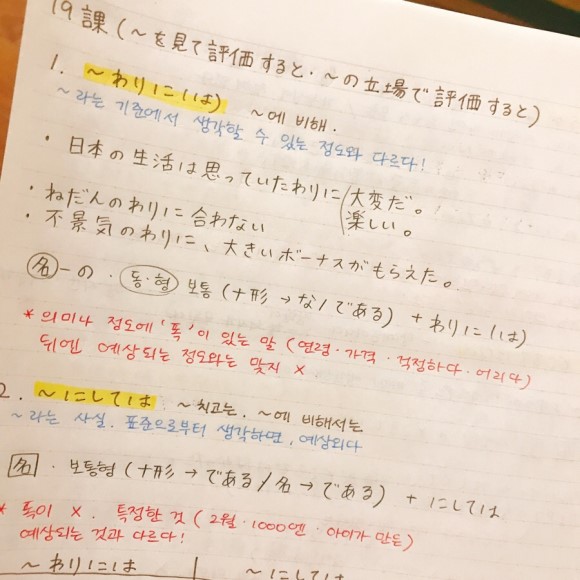 19課 (~を見て評価すると・~の立場で評価すると)
1. ~わりに(は) ~에 비해.
~라는 기준에서 생각할 수 있는 정도와 다르다!
・日本の生活は思っていたわりに 大変だ。
楽しい。
・ねだんのわりに合わない
・不景気のわりに、大きいボーナスがもらえた。
名-の・動・형 보통 (ナ形→な/である) +わりに(は)
* 의미나 정도에 '폭'이 있는 말 (연령・가격・걱정하다・어리다)
뒤엔 예상되는 정도와는 맞지 ×
2. ~にしては ~치고는. ~에 비해서는
~라는 사실. 표준으로부터 생각하면, 예상외다
名・보통형 (ナ形→である/名→である) +にしては
* 폭이 ×. 특정한 것 (2월・1000엔・아이가 만든)
예상되는 것과 다르다!
~わりには ~にしては